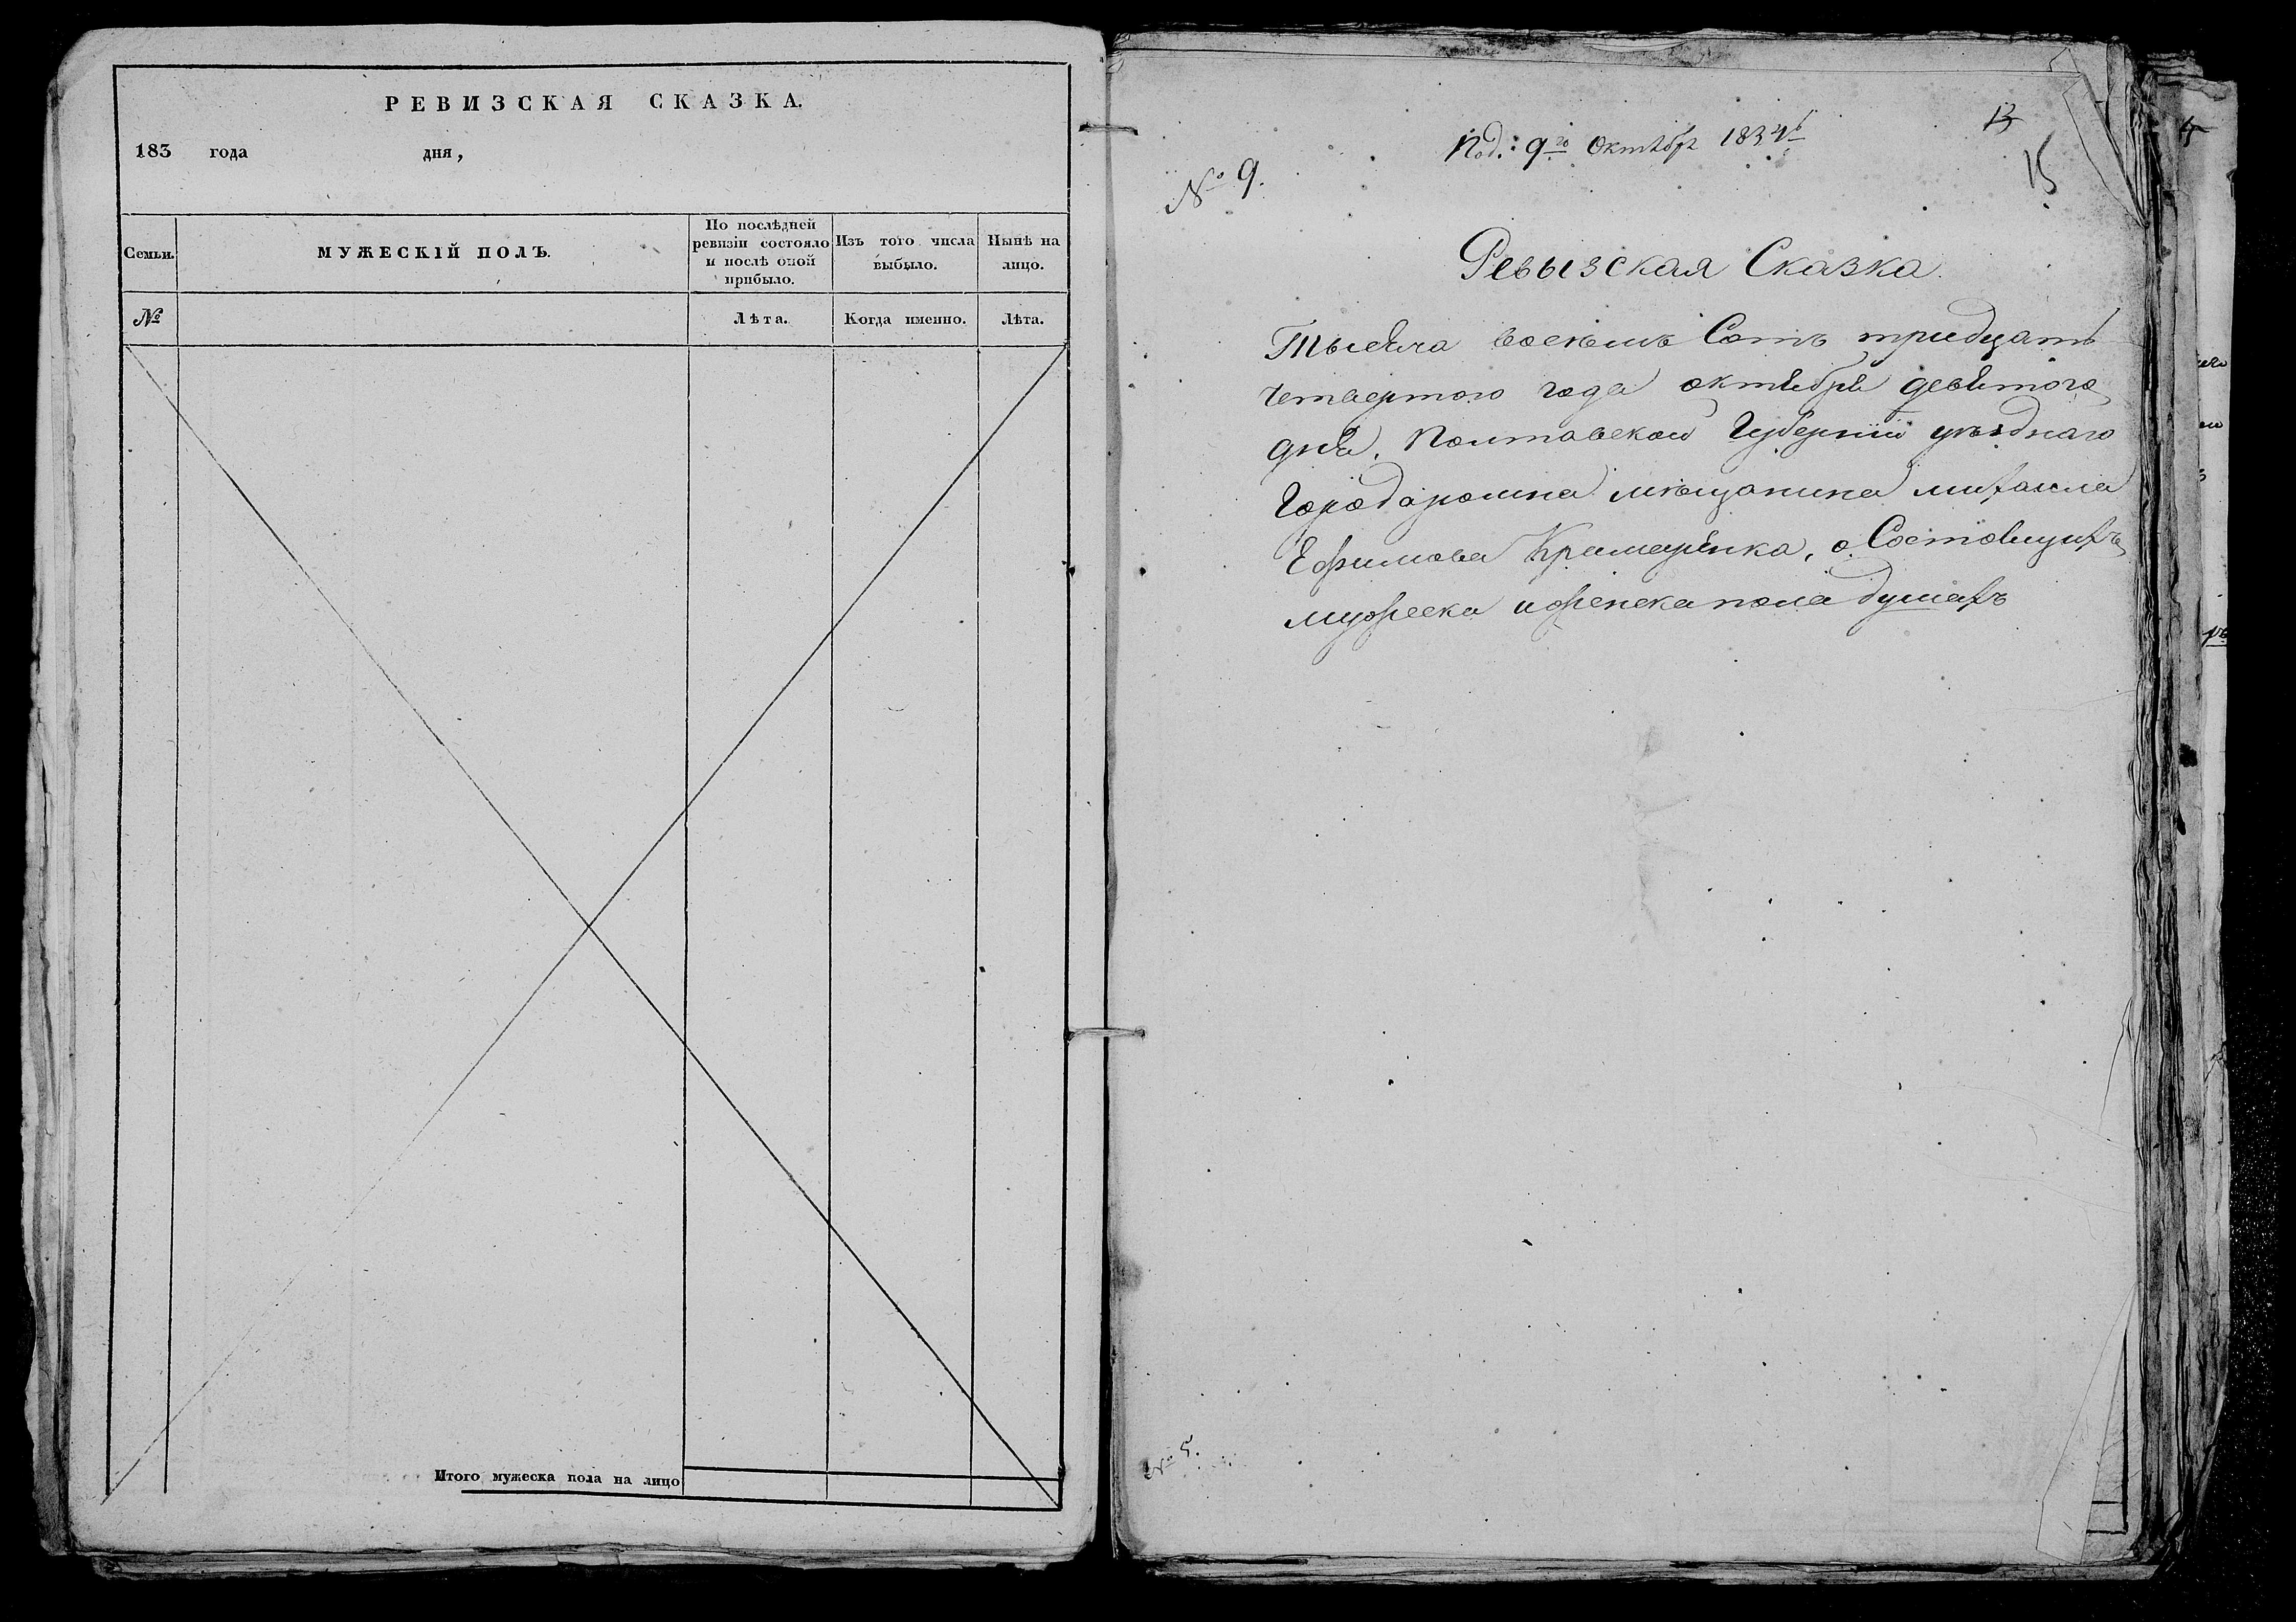 РЕВИЗСКАЯ СКАЗКА.
183 года дня,
Семьи.
МУЖЕСКІЙ ПОЛЪ.
По послѣдней
ревизіи состояло
и послѣ оной
прибыло.
Изъ того числа
выбыло.
Нынѣ на
лицо.
№
Лѣта.
Когда именно.
Лѣта.
Итого мужеска пола на лицо
13
Под: 9го Октября 1834
№ 9.
15
Ревызская Сказка.
Тысяча восемъ Сотъ тридцать
четвертого года октября девятого
дня, Полтавской Губерніи уѣзднаго
Города ромна мѣщанина михаила
Ефимова Крамаренка, о Состоящихъ
мужеска и женска пола душахъ
№ 5.